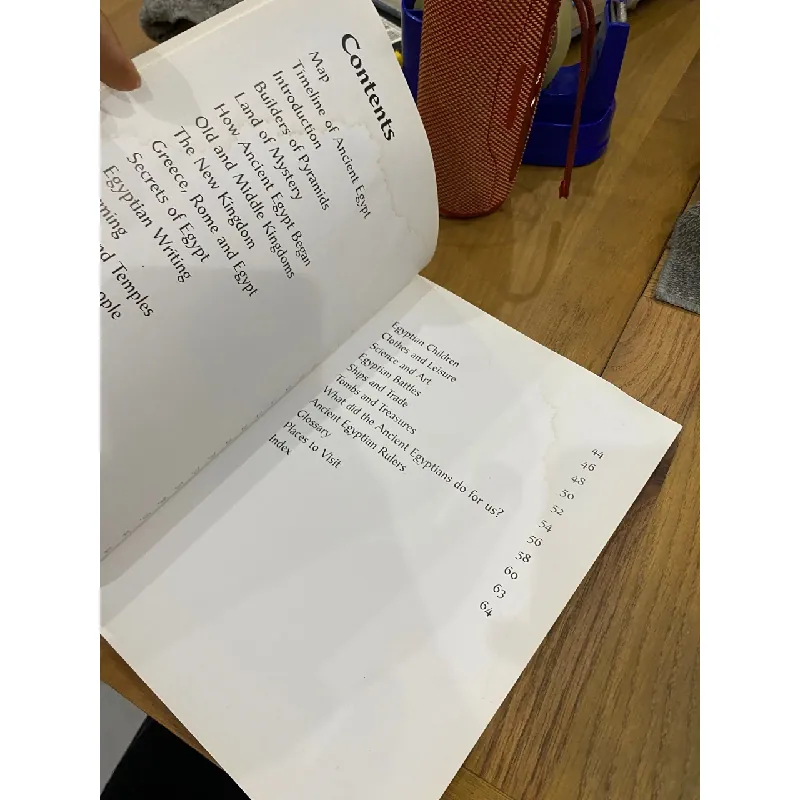 Contents
Map
Timeline of Ancient Egypt
Introduction
Builders of Pyramids
Land of Mystery
How Ancient Egypt Began
Old and Middle Kingdoms
The New Kingdom
Greece, Rome and Egypt
Secrets of Egypt
Egyptian Writing
Temples
Egyptian Children 44
Clothes and Leisure 46
Science and Art 48
Egyptian Battles 50
Ships and Trade 52
Tombs and Treasures 54
What did the Ancient Egyptians do for us? 56
Ancient Egyptian Rulers 58
Glossary 60
Places to Visit 63
Index 64